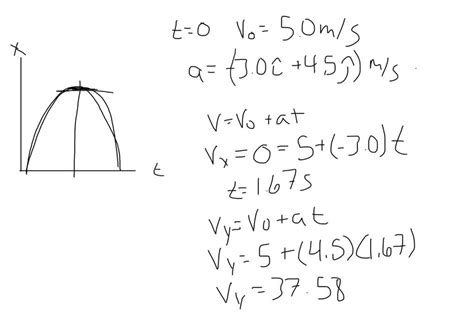 t=0 V₀=5.0m/s
a=(-3.0î+4.5ĵ)m/s
X
t
V=V₀+at
Vₓ=0=5+(-3.0)t
t=1.67s
Vᵧ=V₀+at
Vᵧ=5+(4.5)(1.67)
Vᵧ=37.58